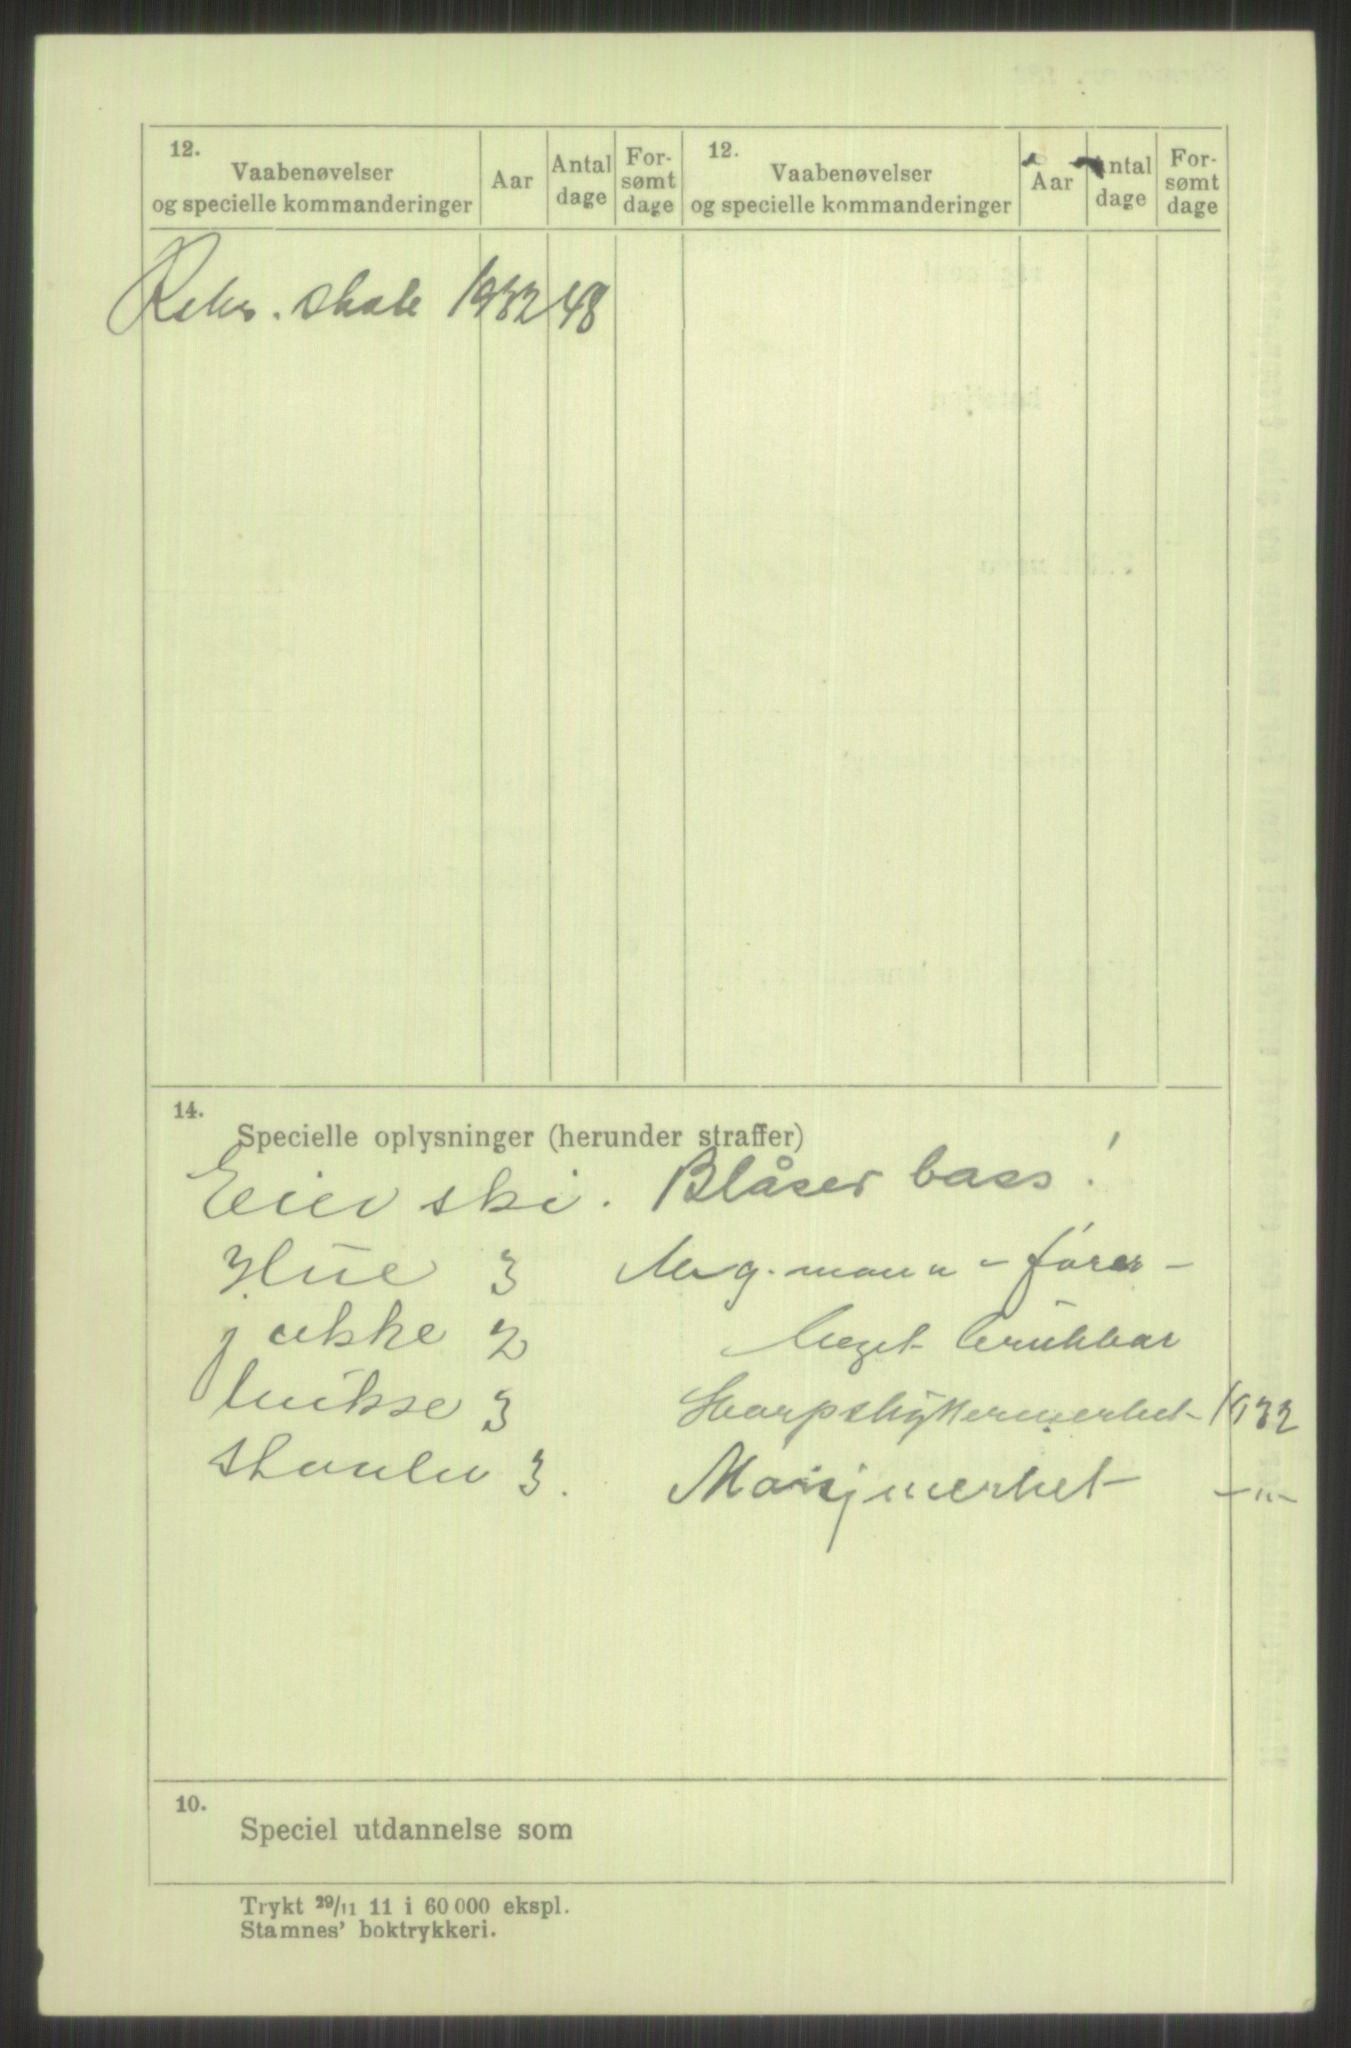 12.
Vaabenøvelser
og specielle kommanderinger
Aar
Antal
dage
For-
sømt
dage
12.
Vaabenøvelser
og specielle kommanderinger
Aar
Antal
dage
For-
sømt
dage
Rekr. skole 1932 48
14.
Specielle oplysninger (herunder straffer)
Eier ski. Blåser bass!
Hue 3 Mg. mann - fører -
jakke 2 Meget brukbar
bukse 3 Skarpskyttermerket 1932
støvler 3. Marsjmerket -"-
10.
Speciel utdannelse som
Trykt 29/11 11 i 60 000 ekspl.
Stamnes' boktrykkeri.